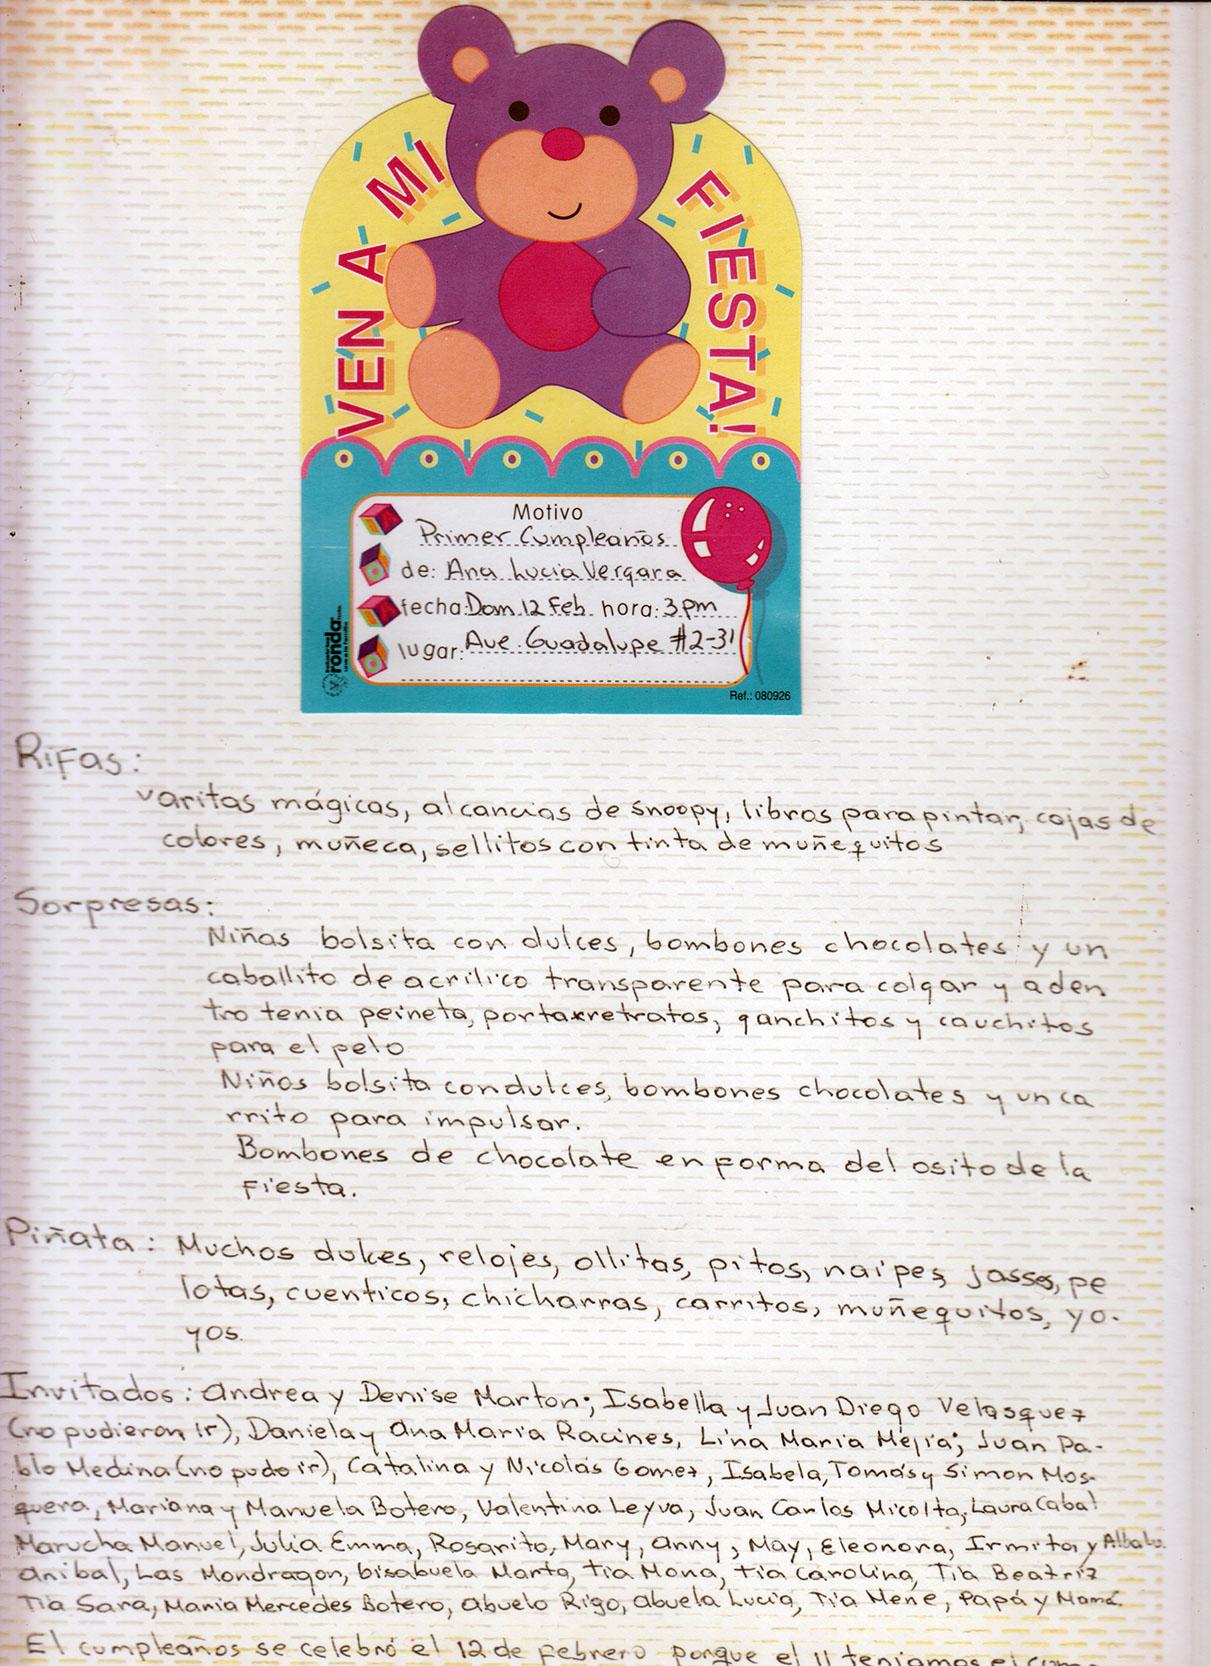 VEN A MI FIESTA!
Motivo
Primer Cumpleaños
de: Ana Lucia Vergara
fecha: Dom 12 Feb hora: 3 pm
lugar: Ave. Guadalupe #2-31
ronda
Ref.: 080926
Rifas:
varitas mágicas, alcancias de snoopy, libros para pintar, cajas de
colores, muñeca, sellitos con tinta de muñequitos
Sorpresas:
Niñas bolsita con dulces, bombones chocolates y un
caballito de acrilico transparente para colgar y aden
tro tenia peineta, portarretratos, ganchitos y cauchitos
para el pelo
Niños bolsita con dulces, bombones chocolates y un ca
rrito para impulsar.
Bombones de chocolate en forma del osito de la
fiesta.
Piñata: Muchos dulces, relojes, ollitas, pitos, naipes, jasses, pe
lotas, cuenticos, chicharras, carritos, muñequitos, yo-
yos.
Invitados: Andrea y Denise Marton; Isabella y Juan Diego Velasquez
(no pudieron ir), Daniela y Ana Maria Racines, Lina Maria Mejia; Juan Pa-
blo Medina (no pudo ir), Catalina y Nicolás Gomez, Isabela, Tomás y Simon Mos-
quera, Mariana y Manuela Botero, Valentina Leyva, Juan Carlos Micolta, Laura Cabal
Marucha Manuel, Julia Emma, Rosarito, Mary, Anny, May, Eleonora, Irmita y Albalu.
Anibal, Las Mondragon, bisabuela Marta, tia Mona, tia Carolina, Tia Beatriz
Tia Sara, Maria Mercedes Botero, abuelo Rigo, abuela Lucia, Tia Mene, Papá y Mamá.
El cumpleaños se celebró el 12 de febrero porque el 11 teniamos el cum-